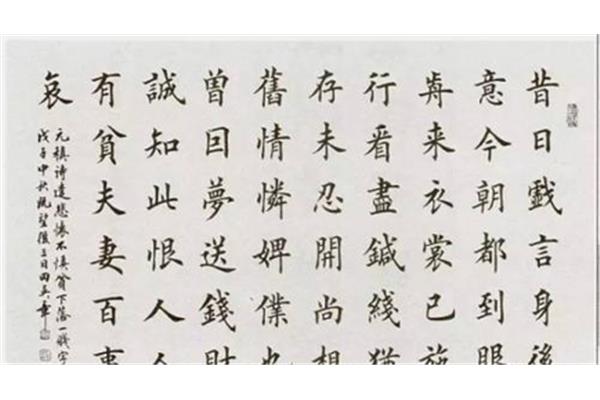 昔日戲言身後
意今朝都到眼
歬来衣裳已施
行看盡鍼綫猶
存未忍開尚相
舊情憐婢僕也
曾回夢送錢財
誠知此恨人人
有貧夫妻百事
哀
元稹诗遣悲懷不慎貧下落一賤字
戊子中秋既望後三日田英章